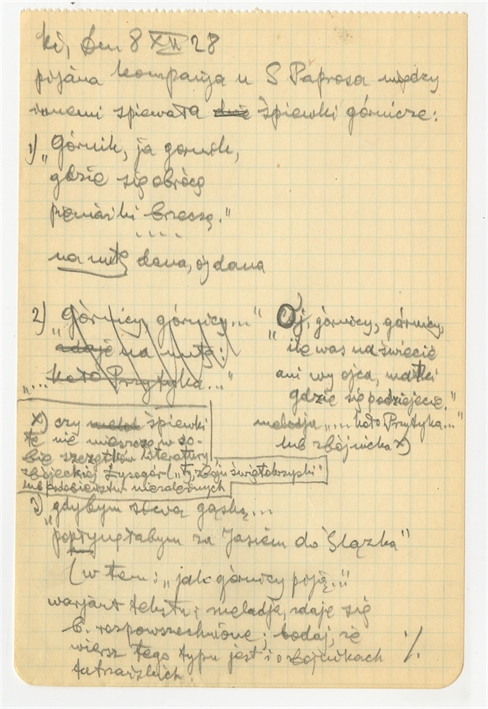 ki, den 8 XII 28
pijana kompanja u S Paprosa między
innemi śpiewała śpiewki górnicze:
1) „Górnik, ja górnik,
gdzie się obrócę
pieniążki brzęczą."
na nutę dana, oj dana
2) „Górnicy, górnicy..."
na nutę:
„... Koło Przytyka..."
„Oj, górnicy, górnicy,
ile was na świecie
ani wy ojca, matki
gdzie się podziejecie."
melodja „... koło Przytyka..."
lub zbójnicka x)
x) czy śpiewki
te nie mieszczą w so-
bie szczątków literatury
zbójeckiej Łysogór („ty, zbóju świętokrzyski"
lub niezależnych
3) „gdybym gąską...
popłynęłabym za Jasiem do Śląska"
(w tem: „jak górnicy piją..."
warjant tekstu i melodja, zdaje się
b. rozpowszechnione; bodaj, że
wiersz tego typu jest i o zbójnikach
tatrzańskich.
%